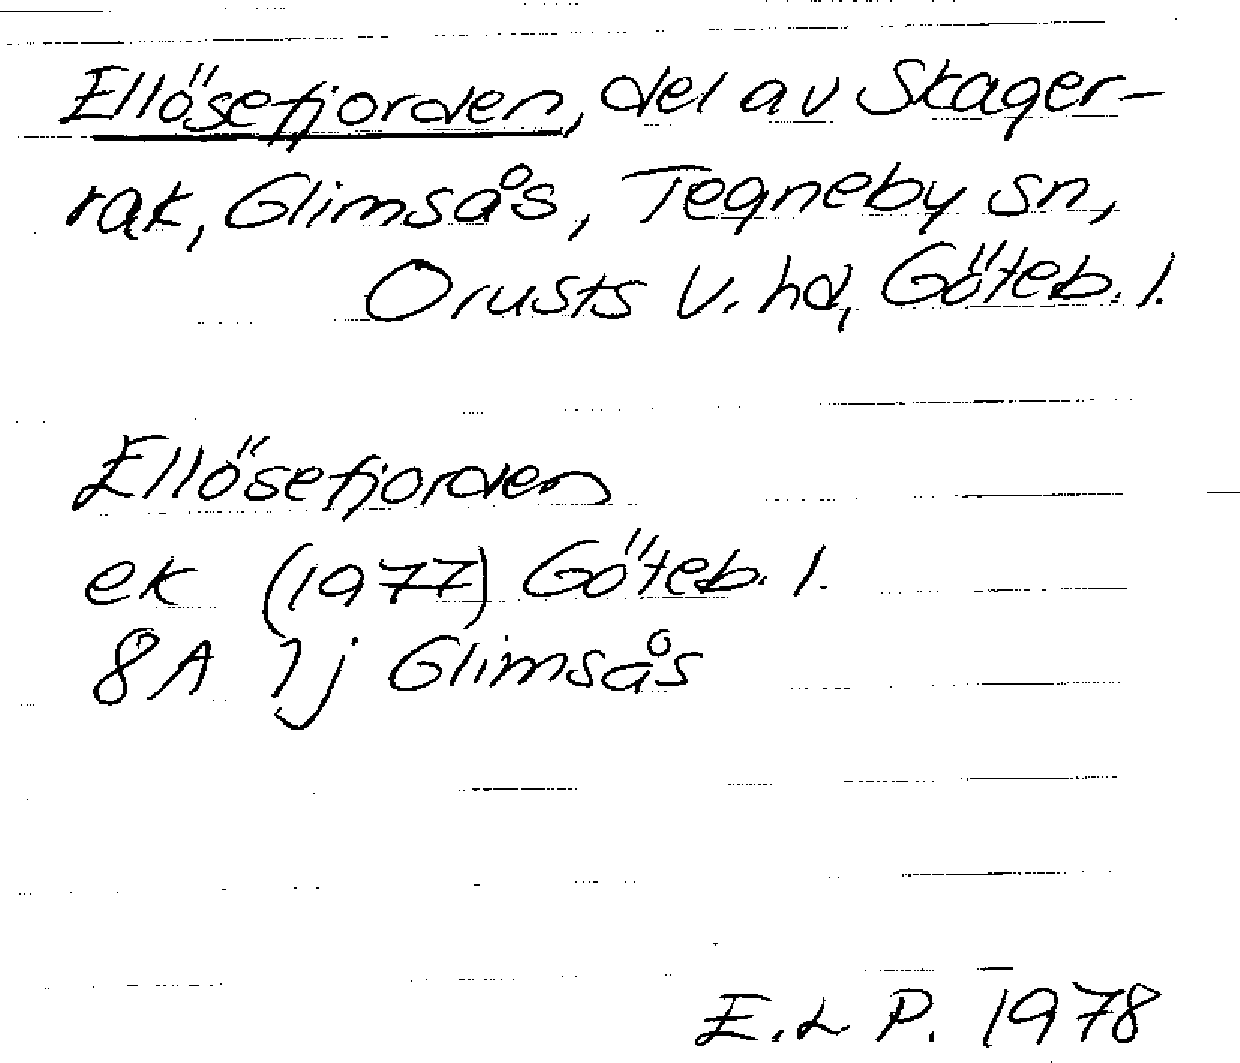 Ellösefjorden, del av Skager-
rak, Glimsås, Tegneby sn,
Orusts V. hd, Göteb. l.
Ellösefjorden
ek (1977) Göteb. l.
8A 1j Glimsås
E.L P. 1978